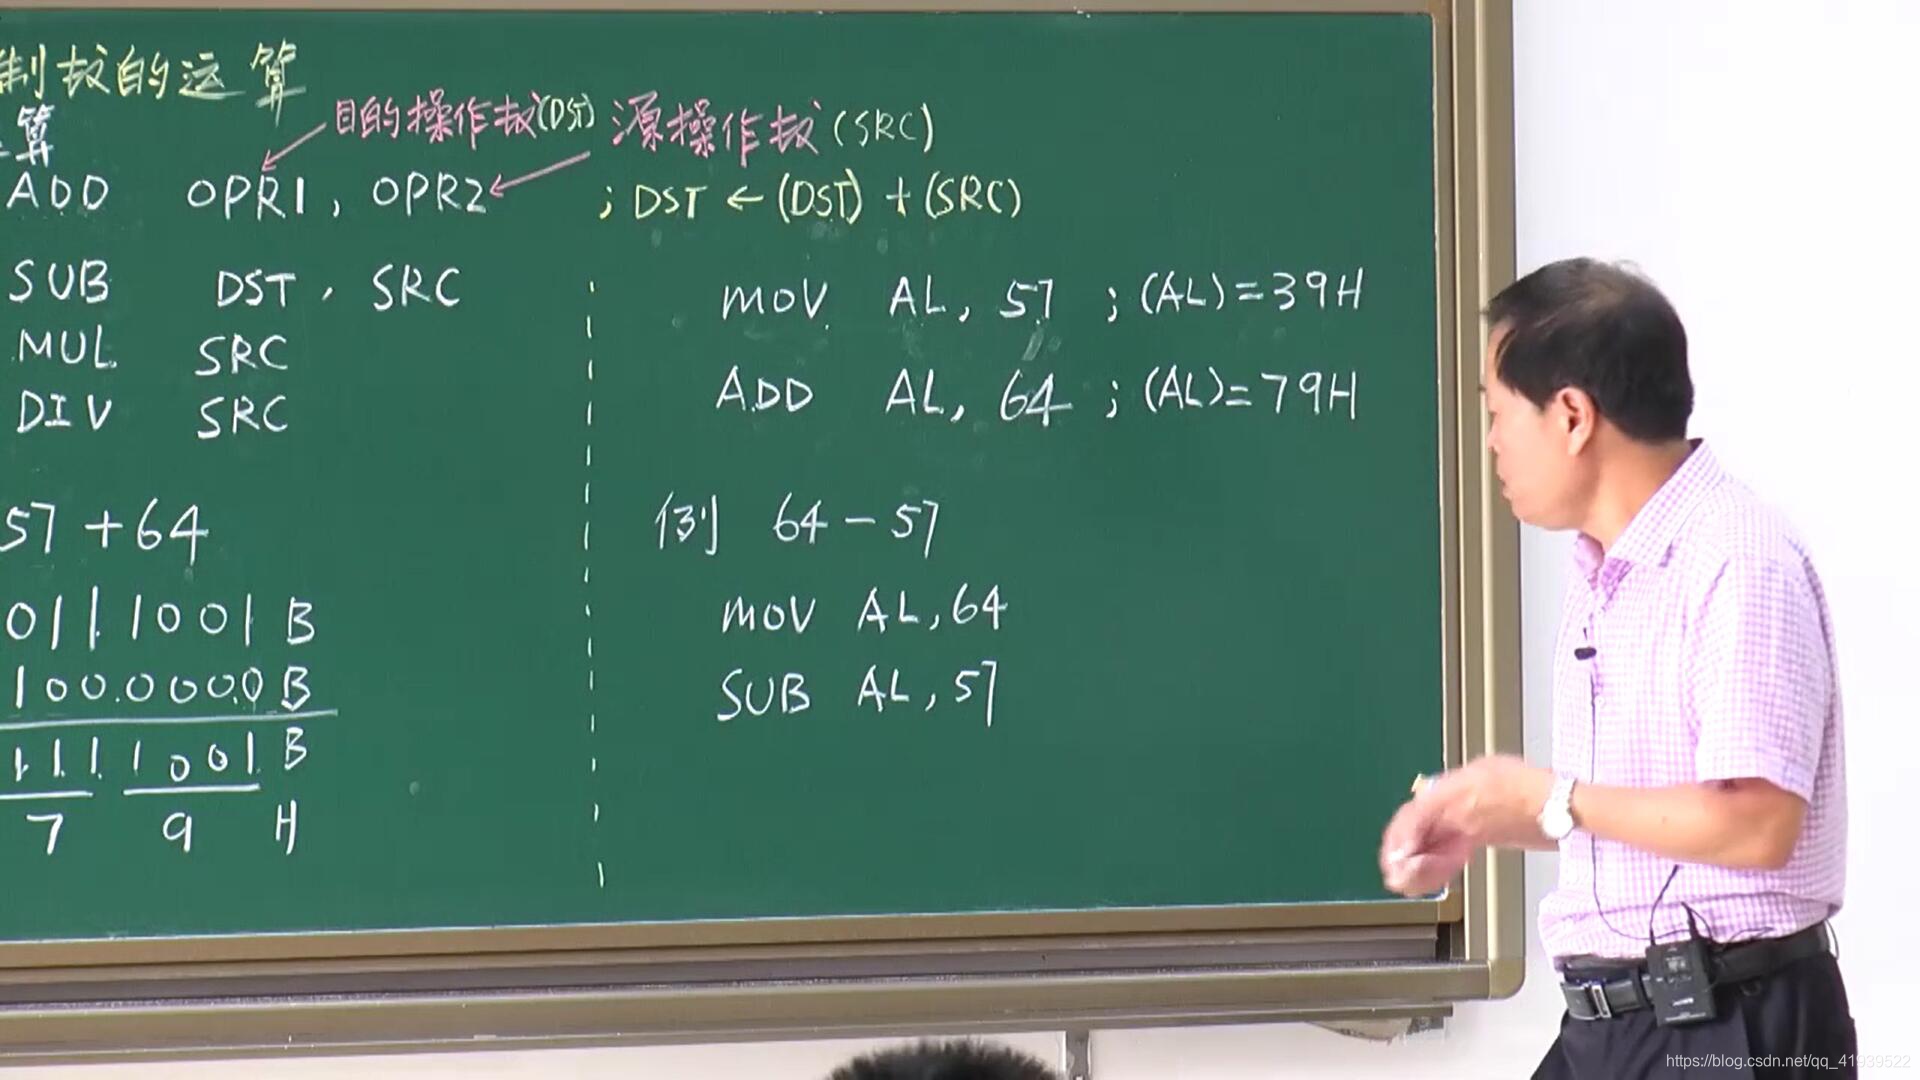 制数的运算
算
目的操作数(DST) 源操作数(SRC)
ADD OPR1, OPR2 ; DST ← (DST) + (SRC)
SUB DST, SRC
MUL SRC
DIV SRC
57 + 64
0111001 B
1000000 B
1111001 B
7 9 H
MOV AL, 57 ; (AL)=39H
ADD AL, 64 ; (AL)=79H
例 64 - 57
MOV AL, 64
SUB AL, 57
https://blog.csdn.net/qq_41939522